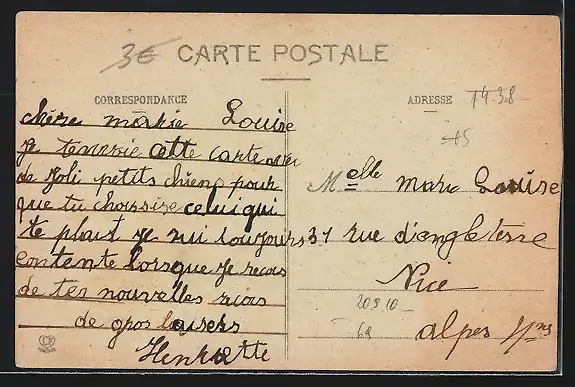 3€
CARTE POSTALE
CORRESPONDANCE
ADRESSE
T4-38-
chère marie Louise
je tenvoie cette carte avec
de joli petits chiens pour
que tu choisise celui qui
te plait je sui toujours
contente lorsque je recois
de tes nouvelles recois
de gros baisers
Henriette
Melle marie Louise
31 rue d'engleterre
Nice
20910-
68
alpes Mmes